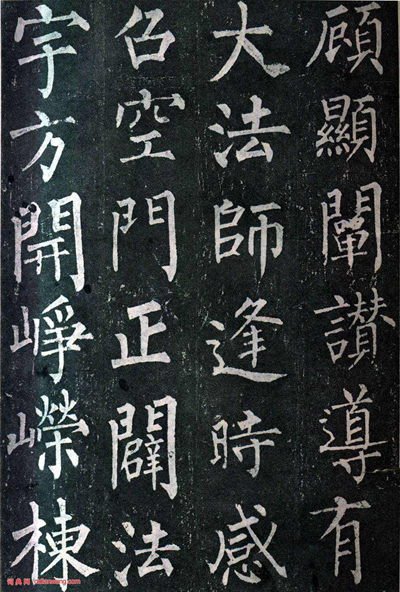 頋顯闡讃導有
大法師逢時感
召空門正闢法
宇方開崢嶸棟